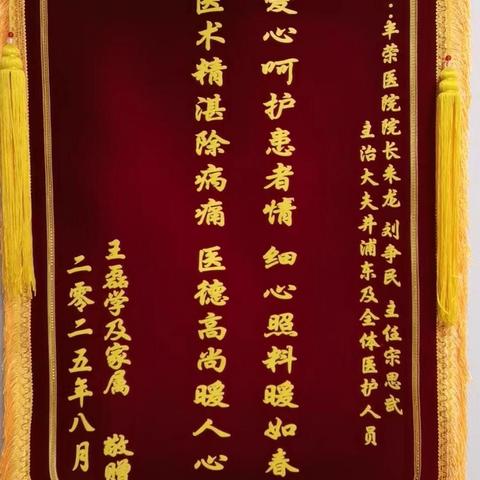 丰荣医院院长朱龙 刘争民 主任宋思武
主治大夫井浦东及全体医护人员
爱心呵护患者情 细心照料暖如春
医术精湛除病痛 医德高尚暖人心
王磊学及家属 敬赠
二零二五年八月